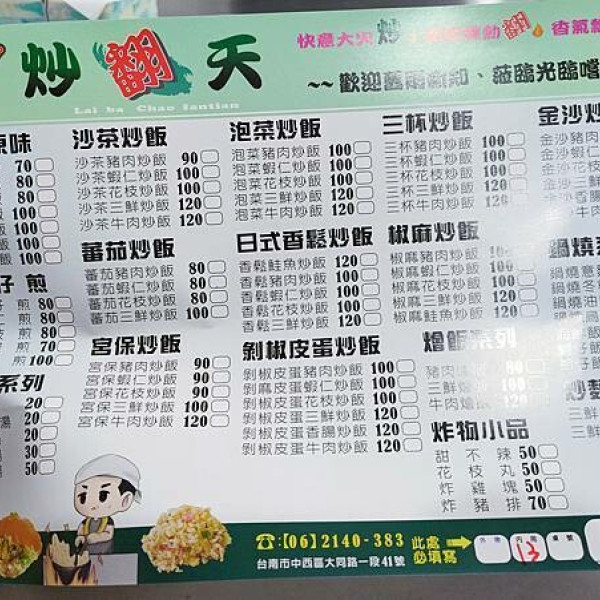 炒翻天
Lai ba Chao fantian
快意大火炒
翻
~~歡迎舊雨新知、蒞臨光臨嚐
原味
70
80
80
100
100
100
沙茶炒飯
沙茶豬肉炒飯 90
沙茶蝦仁炒飯 100
沙茶花枝炒飯 100
沙茶三鮮炒飯 120
沙茶牛肉炒飯 120
泡菜炒飯
泡菜豬肉炒飯 100
泡菜蝦仁炒飯 100
泡菜花枝炒飯 100
泡菜三鮮炒飯 120
泡菜牛肉炒飯 120
三杯炒飯
三杯豬肉炒飯 100
三杯蝦仁炒飯 100
三杯花枝炒飯 100
三杯三鮮炒飯 120
三杯牛肉炒飯 120
金沙炒
金沙豬肉
金沙蝦仁
金沙花
金沙三鮮
金沙香腸
金沙牛肉
仔 煎
煎 80
煎 80
煎 80
煎 70
煎 100
蕃茄炒飯
蕃茄豬肉炒飯 80
蕃茄蝦仁炒飯 80
蕃茄花枝炒飯 80
蕃茄三鮮炒飯 100
日式香鬆炒飯
香鬆鮭魚炒飯 120
香鬆蝦仁炒飯 100
香鬆花枝炒飯 100
香鬆三鮮炒飯 120
椒麻炒飯
椒麻豬肉炒飯 100
椒麻蝦仁炒飯 100
椒麻花枝炒飯 100
椒麻三鮮炒飯 120
椒麻鮭魚炒飯 120
鍋燒
鍋燒意
鍋燒冬
鍋燒油
鍋燒
系列
20
20
20
30
50
宮保炒飯
宮保豬肉炒飯 90
宮保蝦仁炒飯 90
宮保花枝炒飯 90
宮保三鮮炒飯 100
宮保牛肉炒飯 120
剝椒皮蛋炒飯
剝椒皮蛋豬肉炒飯 100
剝麻皮蛋蝦仁炒飯 100
剝椒皮蛋花枝炒飯 100
剝椒皮蛋三鮮炒飯 120
剝椒皮蛋香腸炒飯 120
剝椒皮蛋牛肉炒飯 120
燴飯系列
豬肉燴飯 80
三鮮燴飯
牛肉燴飯 120
炒麵
三鮮
三鮮
炸物小品
甜不辣 50
花枝丸 50
炸雞塊 50
炸豬排 70
☎:【06】2140-383
台南市中西區大同路一段41號
此處必填寫
外帶
內用
桌號
13